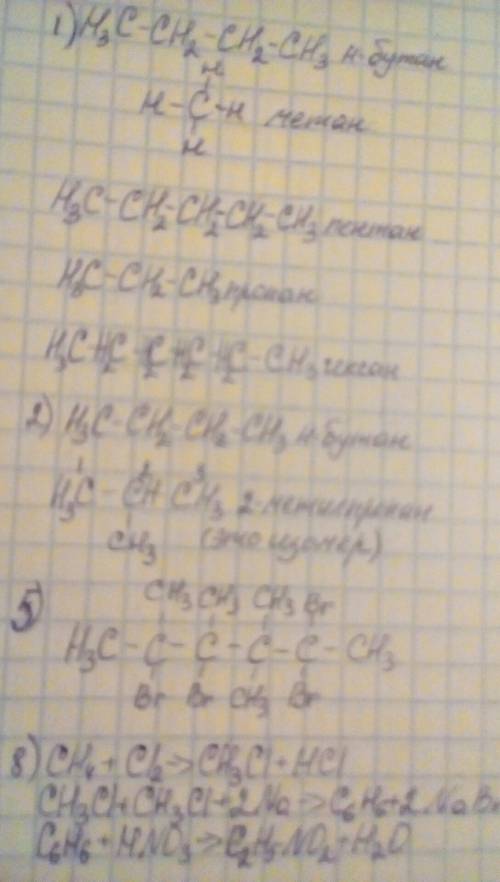 1) H3C-CH2-CH2-CH3 н-бутан
H
H-C-H метан
H
H3C-CH2-CH2-CH2-CH3 пентан
H3C-CH2-CH3 пропан
H3C-H2C-C2-H2C-H2C-CH3 гексан
2) H3C-CH2-CH2-CH3 н-бутан
1 2 3
H3C-CH-CH3 2-метилпропан
CH3 (это изомер)
CH3 CH3 CH3 Br
5) H3C-C-C-C-C-CH3
Br Br CH3 Br
8) CH4+Cl2→CH3Cl+HCl
CH3Cl+CH3Cl+2Na→C6H6+2NaBr
C6H6+HNO3→C2H5NO2+H2O